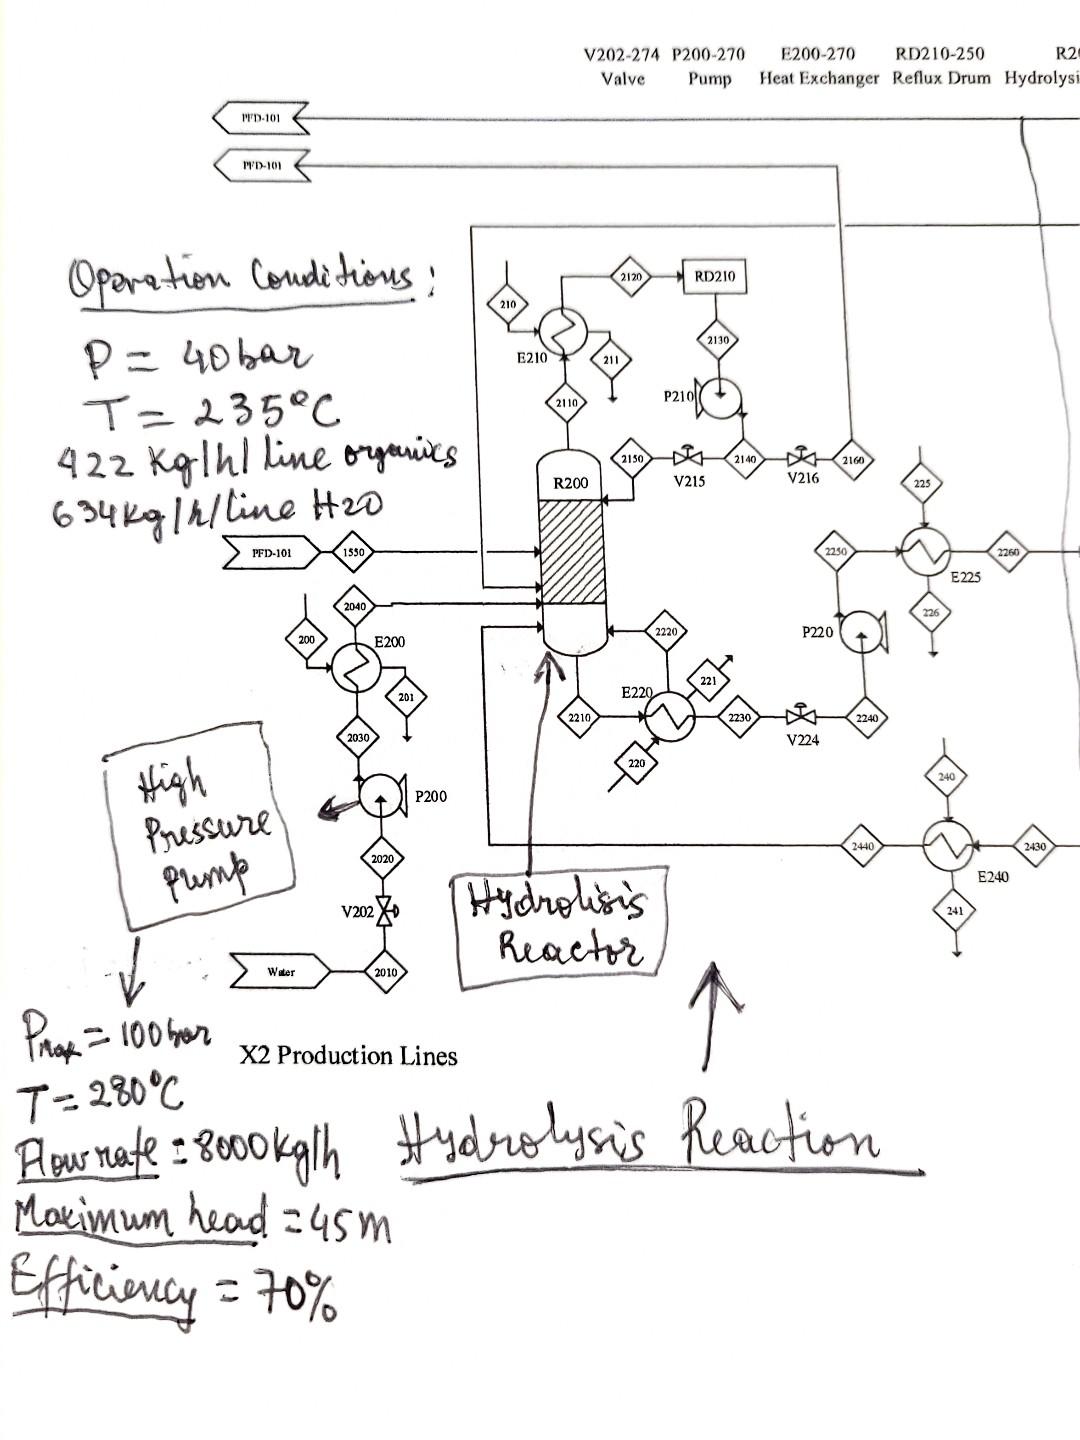 V202-274 P200-270 E200-270 RD210-250
Valve Pump Heat Exchanger Reflux Drum
PFD-101
PFD-101
Operation Conditions :
P = 40 bar
T = 235°C
422 Kg/h/ line organics
634 kg/h/line H2O
2120
RD210
210
E210
211
2130
P210
2110
2150
V215
2140
V216
2160
R200
225
PFD-101
1550
2250
E225
2260
2040
200
E200
201
2220
P220
226
E220
221
2210
2230
V224
2240
220
2030
P200
High
Pressure
Pump
2020
V202
Water
2010
240
2440
E240
2430
241
Hydrolisis
Reactor
Pmax = 100 bar
X2 Production Lines
T = 280°C
Flow rate = 8000 kg/h
Hydrolysis Reaction
Maximum head = 45 m
Efficiency = 70%